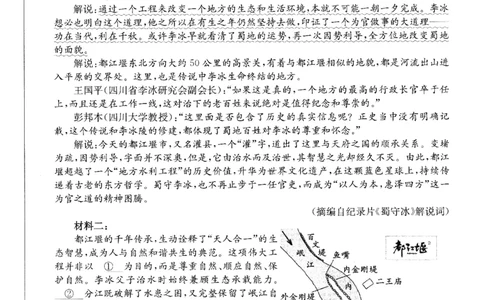 解说:通过一个工程来改变一个地方的生态和生活环境,本就不可能一朝一夕完成。李冰
想必也明白这个道理,他之所以在有生之年仍然坚持去做,印证了一个为官做事的大道理——
功在当代,利在千秋。或许李冰早就看清了蜀地的运势,再一次因势利导,全方位地改变蜀地
的面貌。
解说:都江堰东北方向大约50公里的高景关,有着与都江堰相似的地貌,都是河流出山进
入平原的交界处。这里,也是传说中李冰生命终结的地方。
王国平(四川省李冰研究会副会长):“如果这是真的,一个地方的最高的行政长官卒于任
上,而且还是在工作一线,这对治下的老百姓来说绝对是值得纪念和尊崇的。”
彭邦本(四川大学教授):“这里面是否包含了历史的真实信息呢?正史当中没有明确记
载,这个传说和李冰陵的修建,都体现了蜀地百姓对李冰的尊重和怀念。”
解说:今天的都江堰市,又名灌县,一个“灌”字,道出了这里与天府之国的顺承关系。变堵
为疏,因势利导,字面并不深奥,但是,它由治水而及治世,其智慧之光却经久不灭。由此,都江
堰超越了一个“地方水利工程”的历史价值,升华为世界文化遗产,在这颗蓝色星球上,持续传
递着古老的东方哲学。蜀守李冰,也不再止步于一任官吏,而成为“以人为本,惠泽四方”这一
为官之道的精神图腾。
(摘编自纪录片《蜀守冰》解说词)
材料二:
都江堰的千年传承,生动诠释了“天人合一”的生
态智慧,成为人与自然和谐共生的典范。这项伟大工
程并非以 ① 为目的,而是尊重自然、顺应自然、保
护自然。李冰父子治水时始终兼顾生态承载能力。
② 分江既破解了水患之困,又完整保留了岷江自
百丈堤
鱼嘴
岷江
内金刚堤
二王庙
外金刚堤
内
都江堰